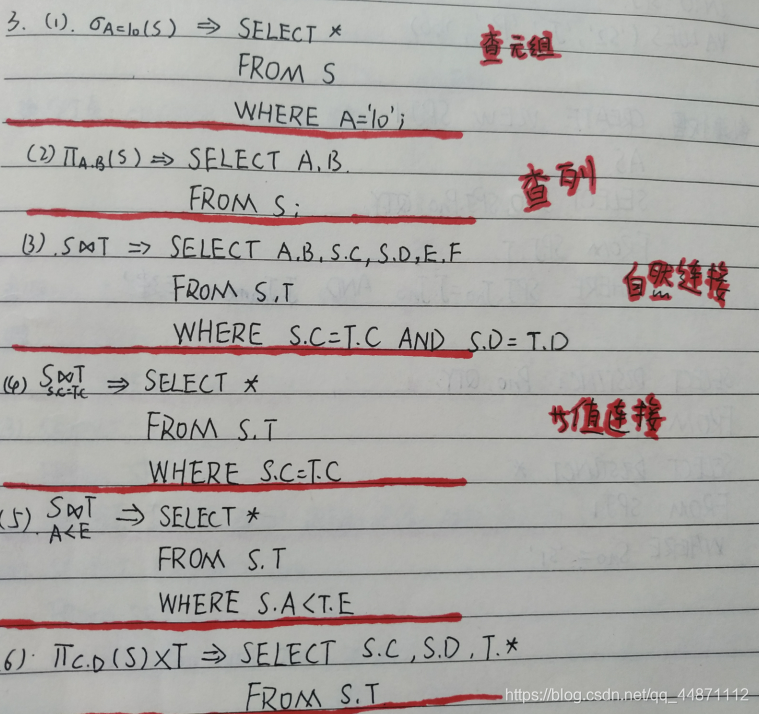 3. (1). σA=10(S) ⇒ SELECT * 查元组
FROM S
WHERE A='10';
(2) ΠA.B(S) ⇒ SELECT A,B. 查列
FROM S;
(3). S⋈T ⇒ SELECT A,B,S.C,S.D,E,F
FROM S,T 自然连接
WHERE S.C=T.C AND S.D=T.D
(4) S⋈T ⇒ SELECT *
S.C=T.C
FROM S.T 值连接
WHERE S.C=T.C
(5). S⋈T ⇒ SELECT *
A<E
FROM S.T
WHERE S.A<T.E
6). ΠC.D(S)×T ⇒ SELECT S.C,S.D,T.*
FROM S.T
https://blog.csdn.net/qq_44871112